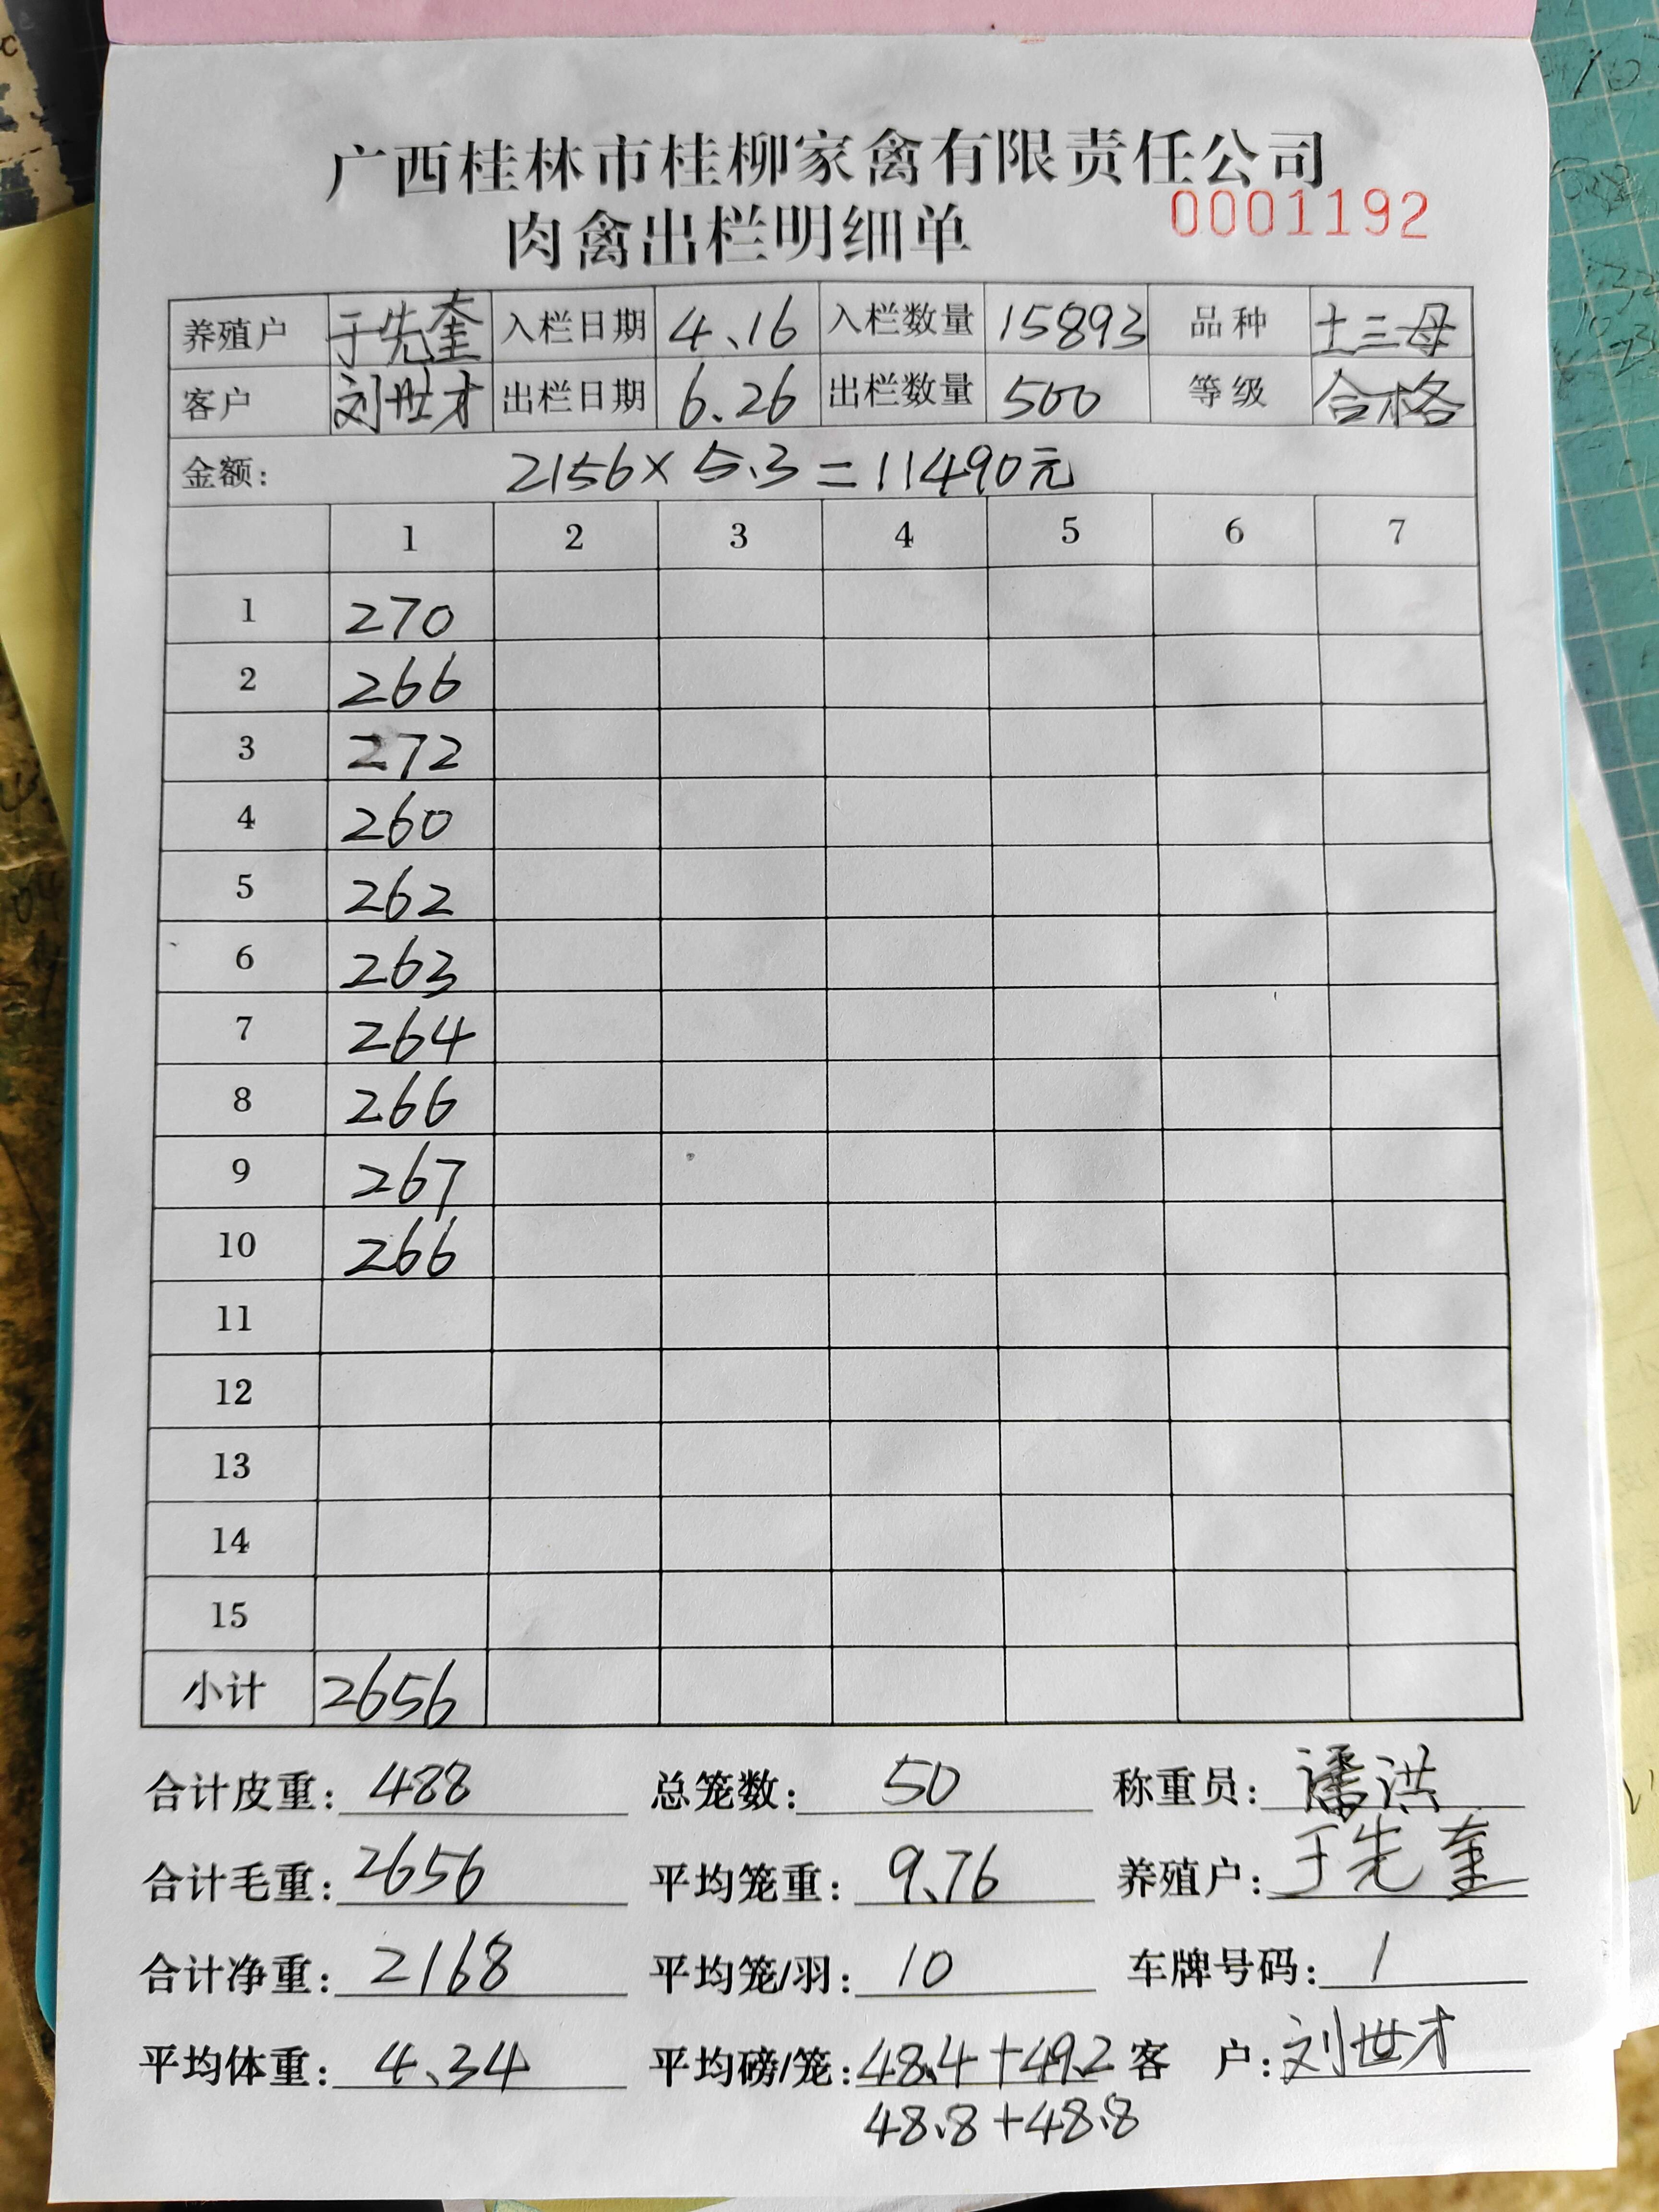 广西桂林市桂柳家禽有限责任公司
肉禽出栏明细单 0001192
养殖户 于先奎 入栏日期 4.16 入栏数量 15893 品种 土三母
客户 刘世才 出栏日期 6.26 出栏数量 500 等级 合格
金额: 2156×5.3=11490元
1 2 3 4 5 6 7
1 270
2 266
3 272
4 260
5 262
6 263
7 264
8 266
9 267
10 266
11
12
13
14
15
小计 2656
合计皮重: 488 总笼数: 50 称重员: 潘洪
合计毛重: 2656 平均笼重: 9.76 养殖户: 于先奎
合计净重: 2168 平均笼/羽: 10 车牌号码: 1
平均体重: 4.34 平均磅/笼: 48.4+49.2 客户: 刘世才
48.8+48.8